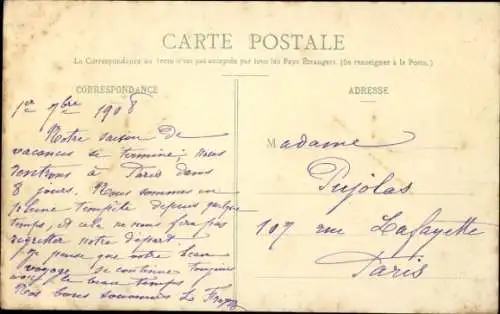 CARTE POSTALE
La Correspondance au verso n'est pas acceptée par tous les Pays Étrangers. (Se renseigner à la Poste.)
CORRESPONDANCE
ADRESSE
1er 7bre 1908
Notre saison de
vacances se termine; nous
rentrons à Paris dans
8 jours. Nous sommes en
pleine tempête depuis quelque
temps, et cela ne nous fera pas
regretter notre départ.
Je pense que votre beau
voyage se continue toujours
avec le beau temps
Nos bons souvenirs
Madame
Pujolas
107 rue Lafayette
Paris